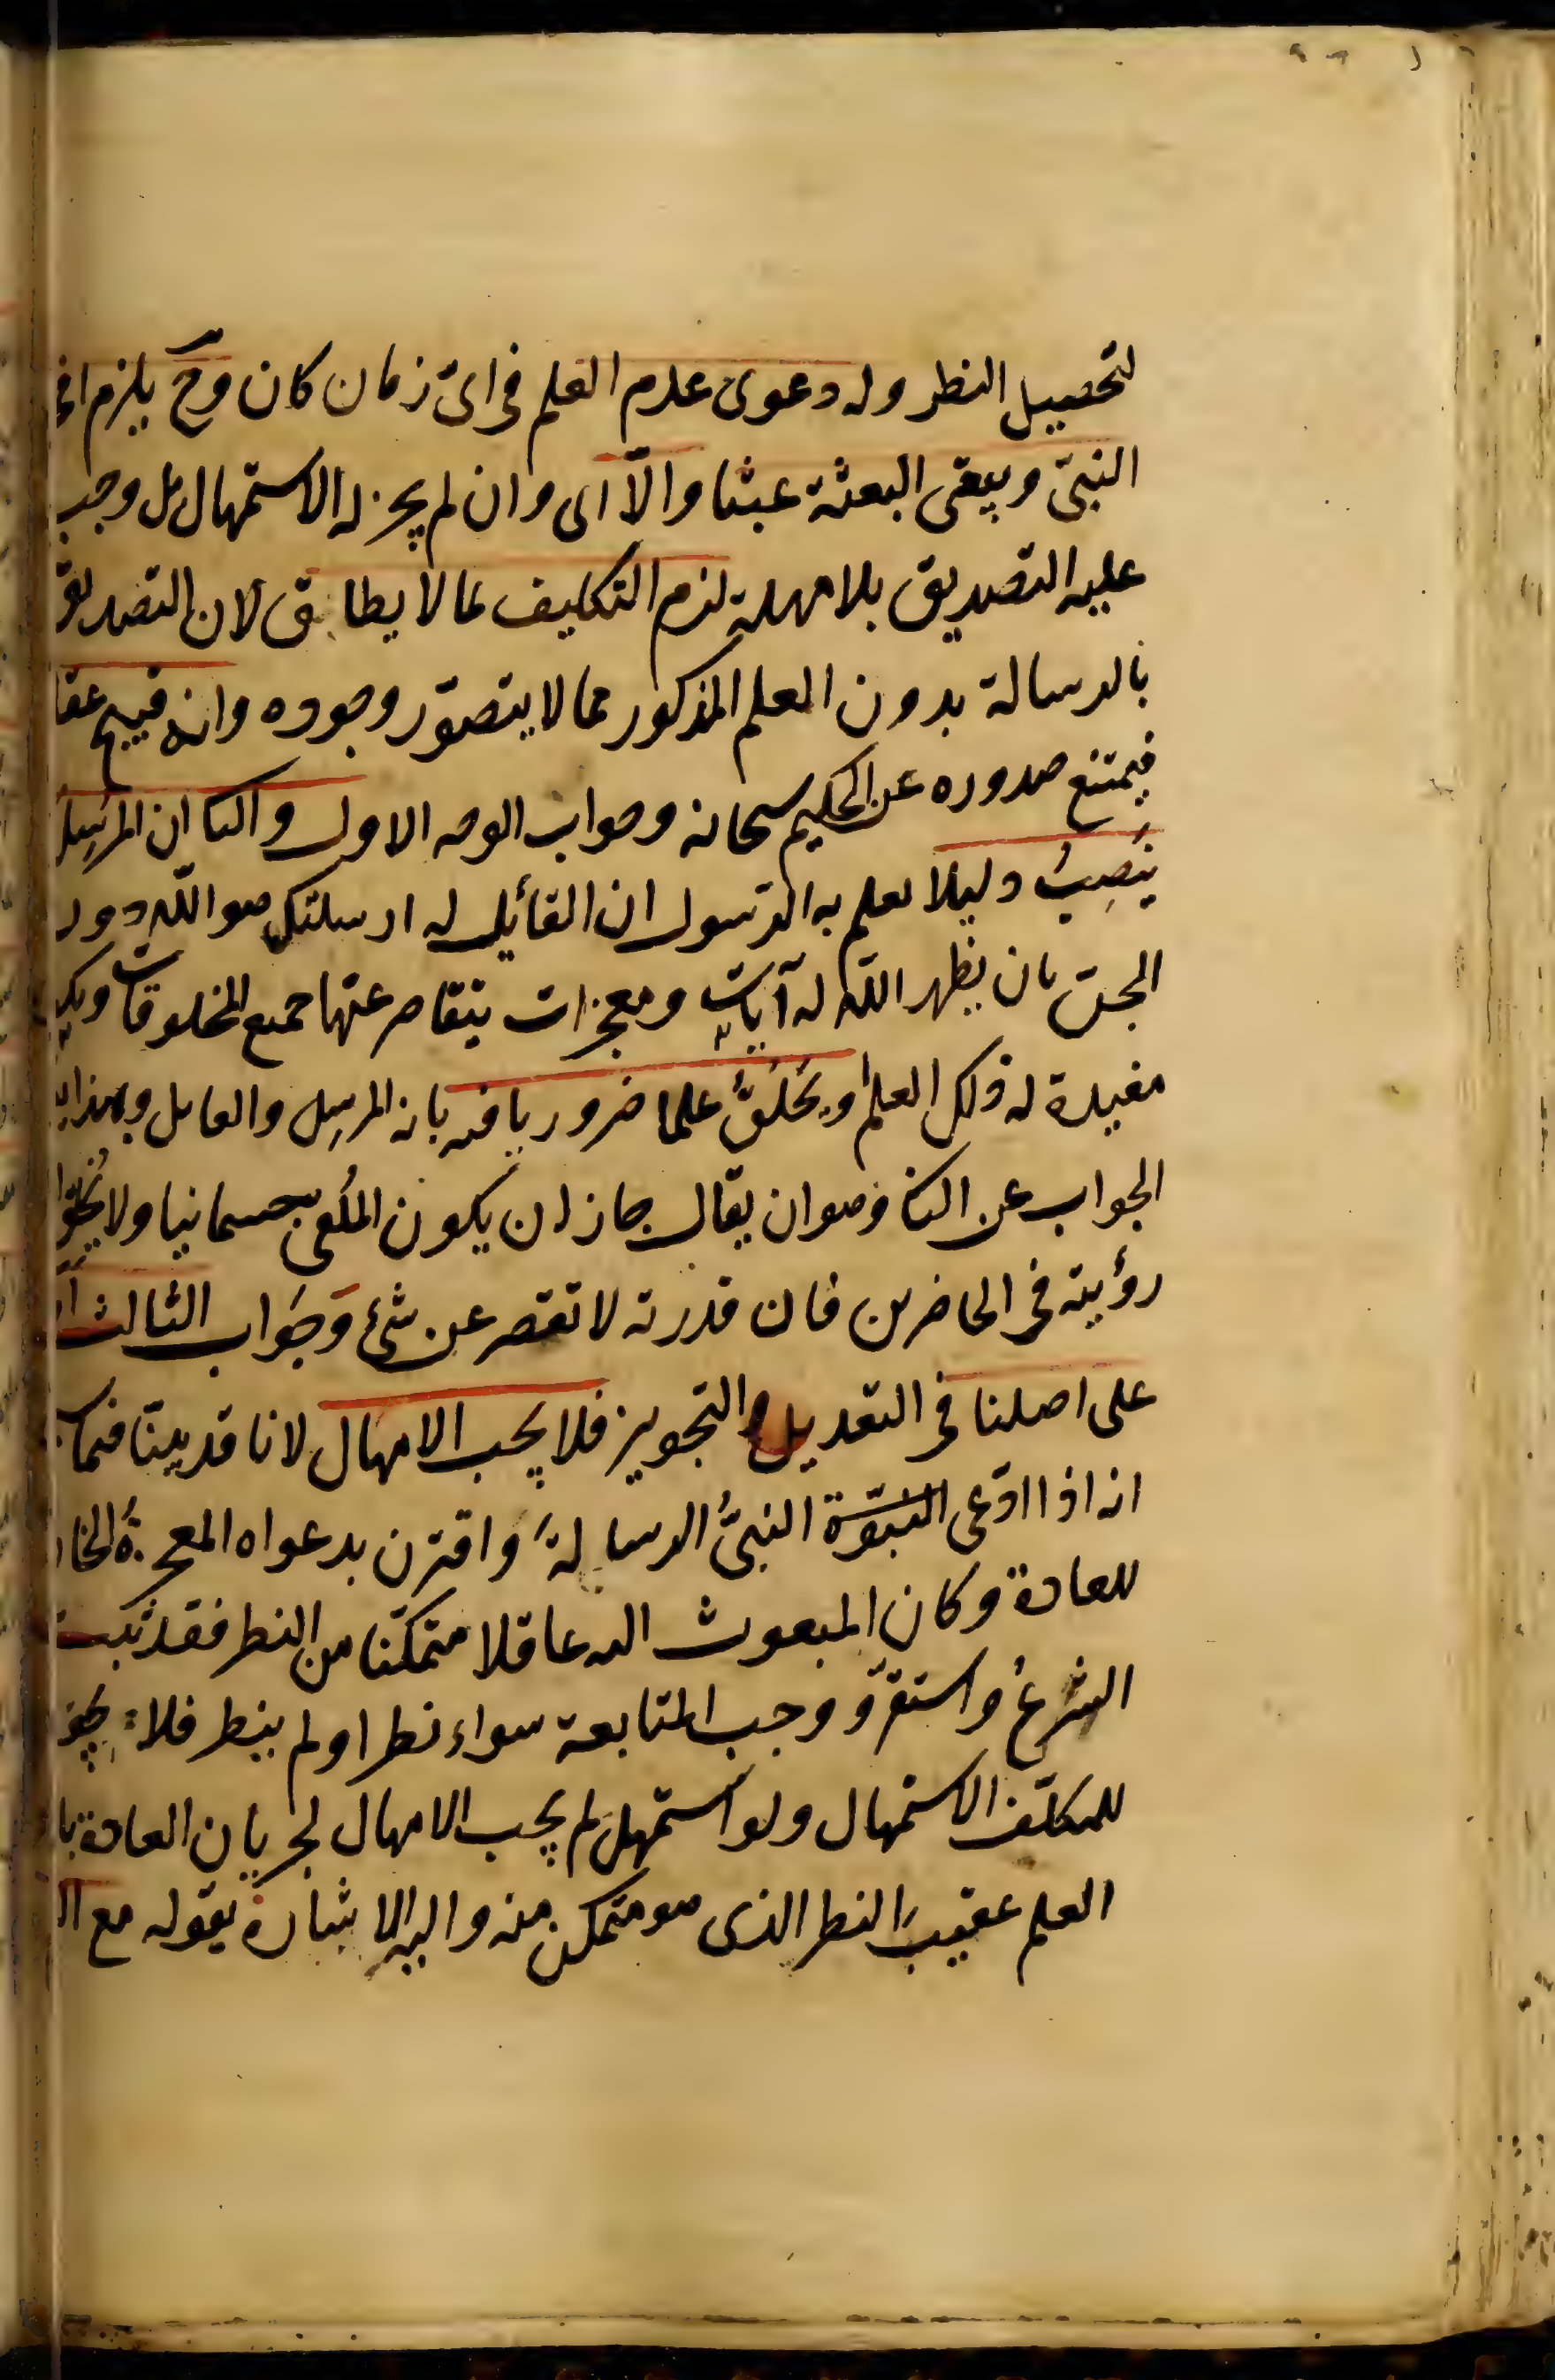 لتحصيل النظر وله دعوى عدم العلم فى اىّ زمان كان وحّ يلزم
النبىّ ويبقى البعثة عبثا والّا اى وان لم يجز له الاستمهال بل وجب
عليه التصديق بلا مهلة لزم التكليف بما لا يطاق لان التصديق
بالرسالة بدون العلم المذكور مما لا يتصوّر وجوده وانه قبيح عقلا
فيمتنع صدوره عن الحكيم سبحانه وجواب الوجه الاول والثا ان المرسِل
ينصِبُ دليلا يعلم به الرسول ان القائل له ارسلتك هو اللّه دون
الجنّ بان يظهر اللّه له آياتٍ ومعجزات يتقاصر عنها جميع المخلوقات
مفيدة له ذلك العلم او يخلقُ علما ضروريا فيه بانه المرسِل والقائل وبهذا
الجواب عن الثا وهوان يقال جاز ان يكون المُلقى جسمانيا ولا يخلق
رؤيته فى الحاضرين فان قدرته لا تقصر عن شئ وجواب الثالث
على اصلنا فى التعديل والتجويز فلا يجب الامهال لانا قد بينّا فيما
انه اذا ادّعى النبوّة النبىُّ الرسالةَ واقترن بدعواه المعجزةُ
للعادة وكان المبعوث اليه عاقلا متمكّنا من النظر فقد ثبت
الشرعُ واستقرّ ووجب المتابعة سواء نظر او لم ينظر فلا يجوز
للمكلّف الاستمهال ولو استمهل لم يجب الامهال لجريان العادة
العلم عقيبَ النظر الذى هو متمكن منه واليه الاشارة بقوله مع